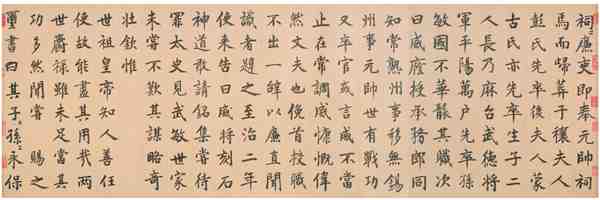 祠廉吏即奉元帥祠
焉而歸葬于禳夫人
彭氏先卒後夫人蒙
古氏亦先卒生子二
人長乃麻台武德將
軍平陽萬戶先卒孫
敏國不華襲其職次
曰宬應授承務郎同
知常熟州事移無錫
州事元帥世有戰功
又卒官或言宬不當
止在常調宬慷慨
然丈夫也俛首授職
不出一辭以廉直聞
識者韙之至治二年
使來告曰宬將刻石
神道敢請銘集嘗待
罪太史見武敏世家
未嘗不歎其謀略奇
壯欽惟
世祖皇帝知人善任
使故能盡其用哉兩
世爵祿雖未足當其
功多然聞嘗 賜之
璽書曰其子孫永保